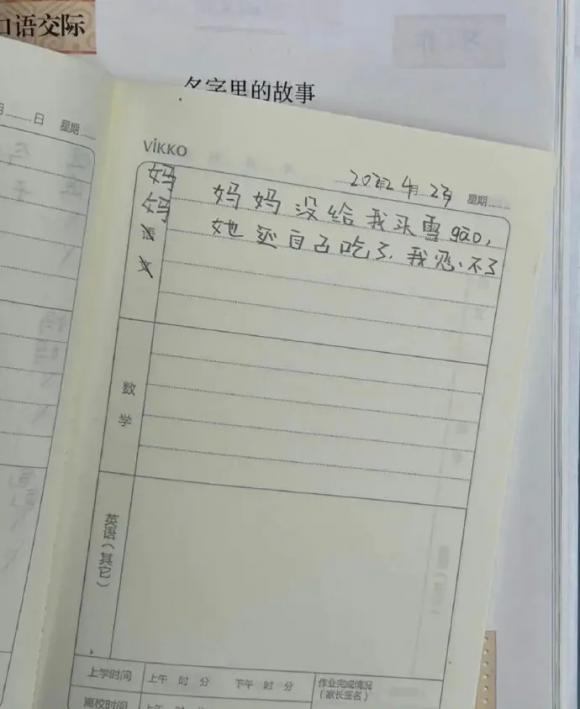 口语交际
名字里的故事
月 日 星期
VIKKO
2022年4月23日 星期
妈妈
妈妈没给我买雪gāo,
她还自己吃了.我忍不了
数学
英语(其它)
上学时间 上午 时 分 下午 时 分
作业完成情况
(家长签名)
离校时间 上午 时 分